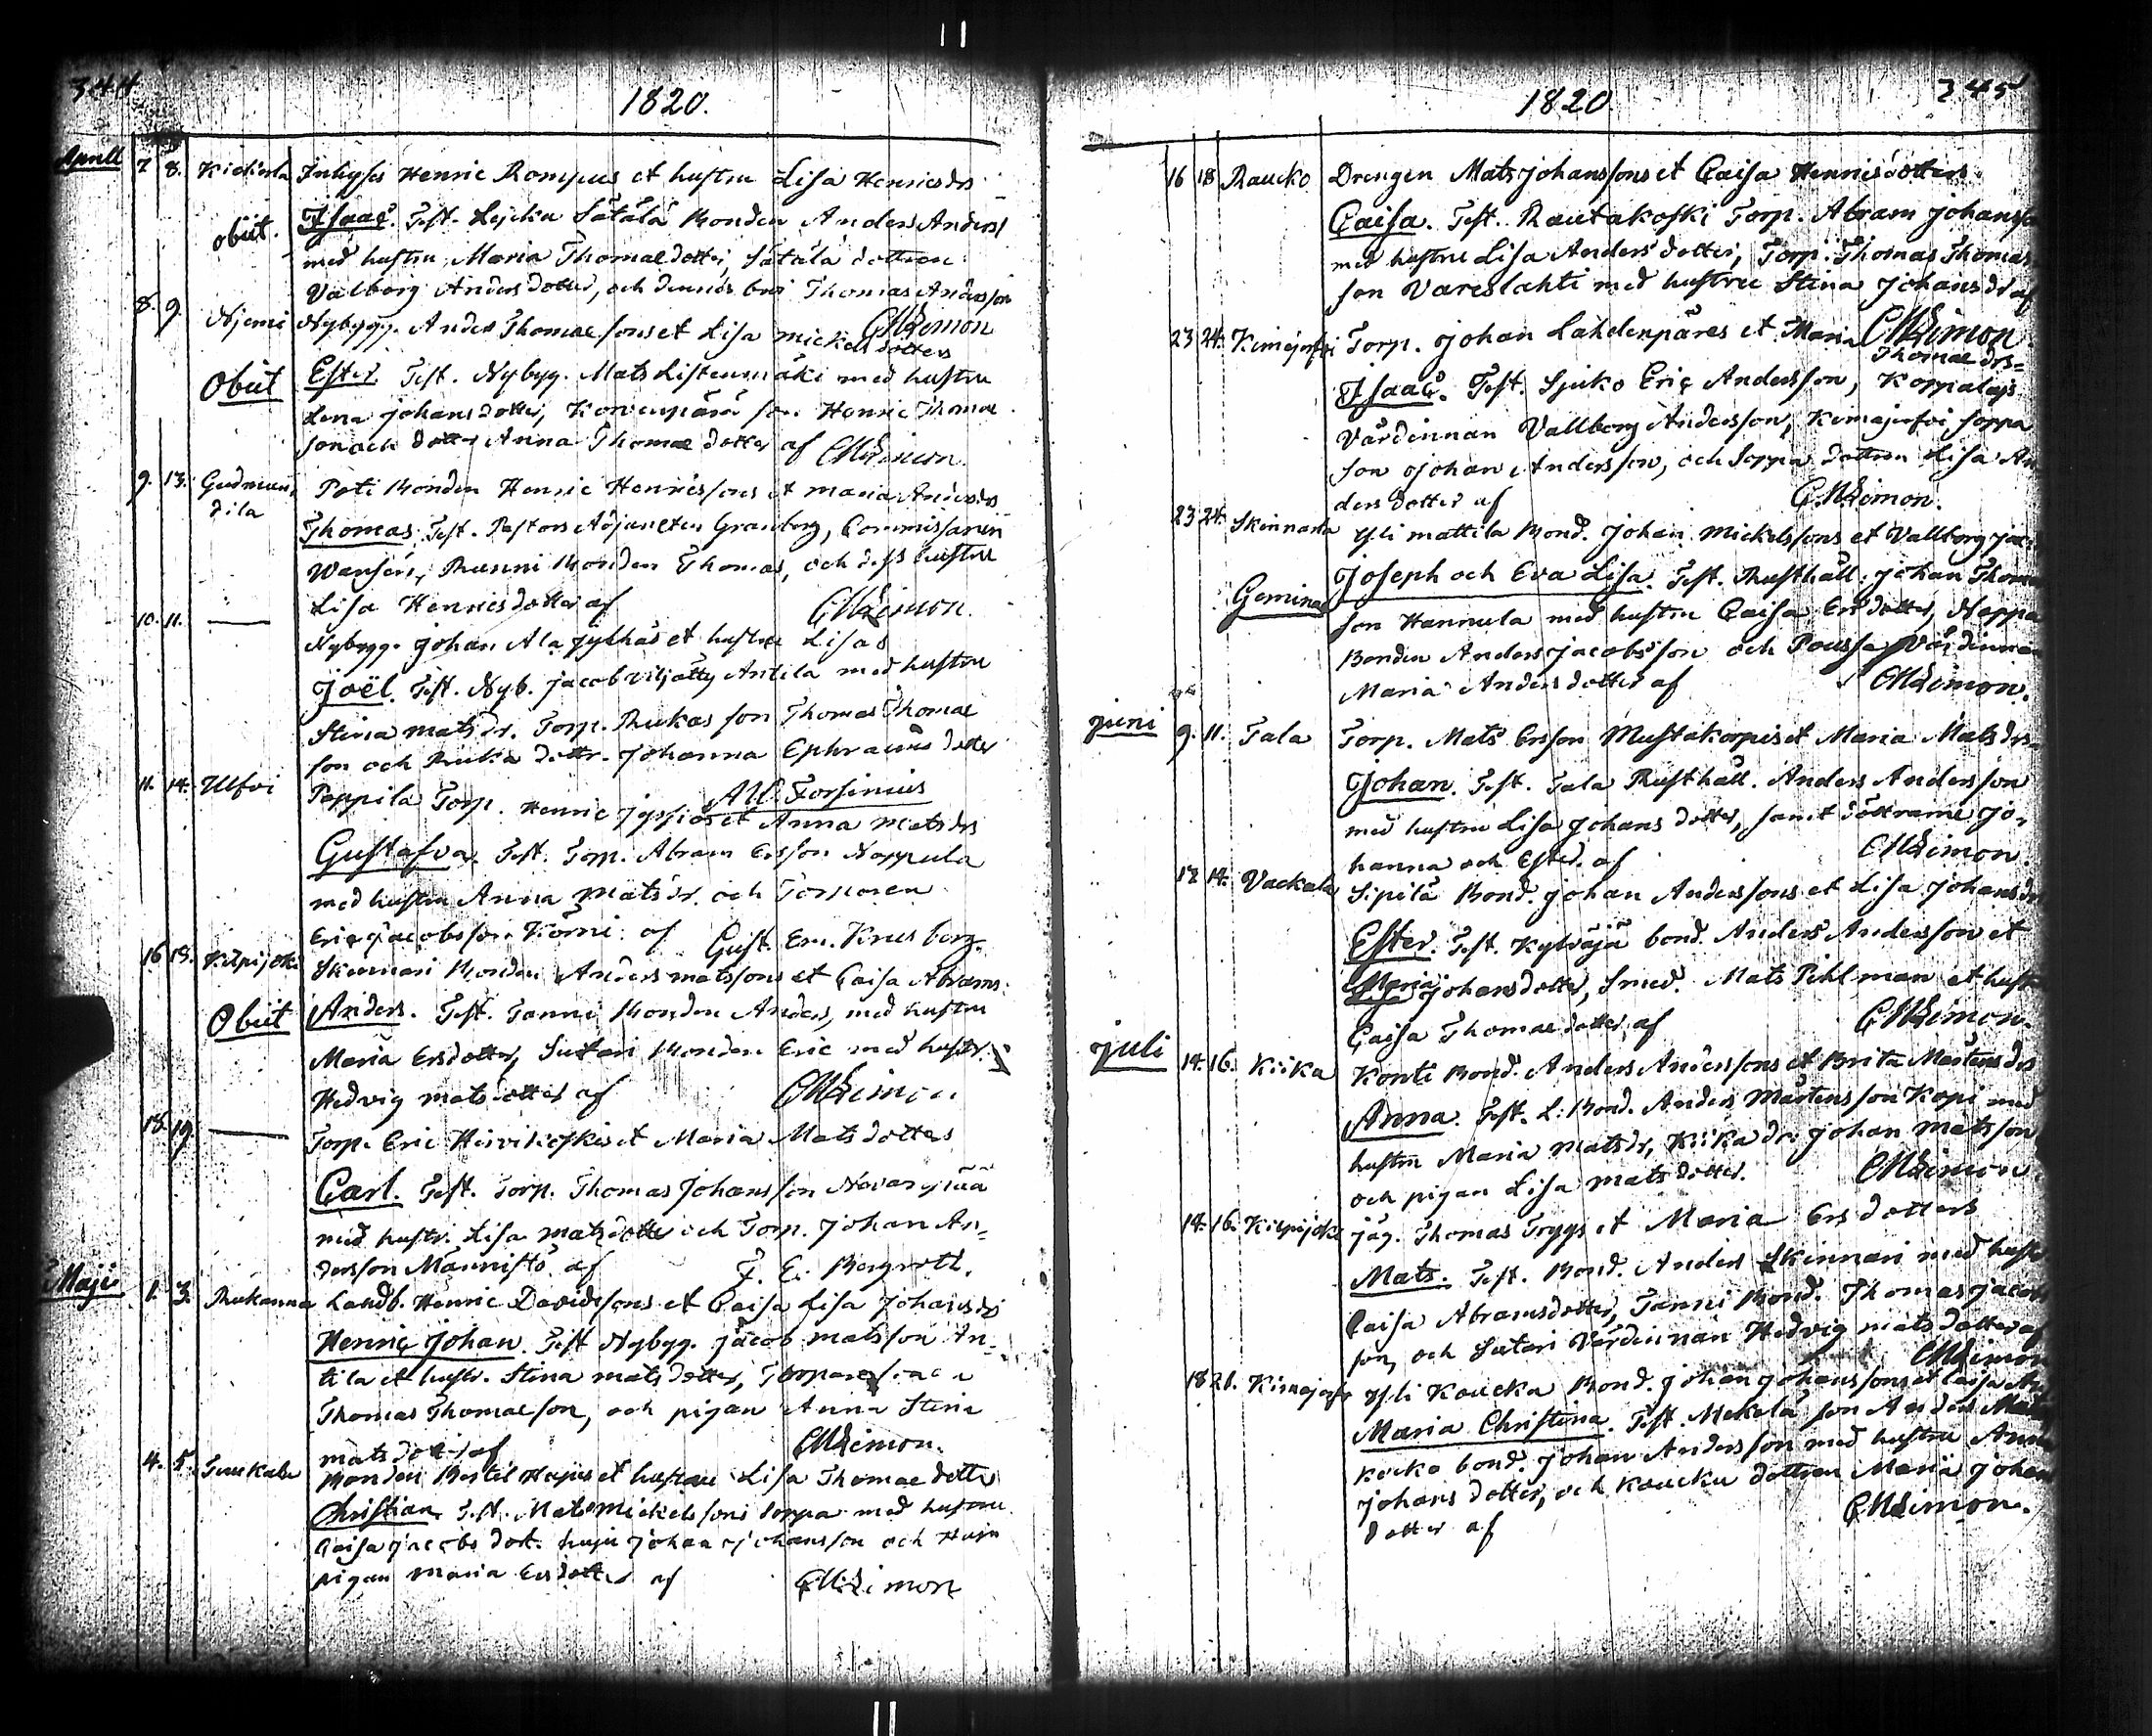 344
1820.
Aprill 7 8. Inhyses Henric Rompus et hustru Lisa Henricsdrs
obiit. Isaac. Test. Lejcku Sätälä Bonden Anders Anders
med hustru Maria Thomaedotter, Sätälä dottren
Valborg Andersdotter, och dennes bror Thomas Andersson
CMLimon
8. 9. Njemi Nybygg. Anders Thomaesons et Lisa Mickelsdotters
Obiit Ester. Test. Nybyg. Mats Listenmäki med hustru
Lena Johansdotter, Korvenpärä son Henric Thomae
son och dotter Anna Thomaedotter af CMLimon.
9. 13. Gudmundila Poti Bonden Henric Henricssons et Maria Andersdrs
Thomas. Test. Pastors Adjuncten Granberg, Commissarien
Wansén, Runni Bonden Thomas, och dess hustru
Lisa Henricsdotter af CMLimon.
10. 11. — Nybygg. Johan Ala Jykhäs et hustru Lisas
Joël. Test. Nyb. Jacob Antila med hustru
Stina Matsdr. Torp. Ruckas son Thomas Thomae
son och Rucka dottr. Johanna Ephraimsdotter
Alb. Forsinius
11. 14. Ulfvi Peppila Torp. Henric et Anna Matsdrs
Gustafva. Test. Torp. Abram Ersson Noppula
med hustru Anna Matsdr. och Torparen
Eric Jacobsson Körni af Gust. Em. Krusberg.
16 18. Kilpijoki Skinnari Bonden Anders Matssons et Caisa Abrams.
Obiit Anders. Test. Tanni Bonden Anders, med hustru
Maria Ersdotter, Sutari Bonden Eric med hustr.
Hedvig Matsdotter af CMLimon
18. 19 — Torp. Eric Hirvikoskis et Maria Matsdotters
Carl. Test. Torp. Thomas Johansson
med hustr. Lisa Matsdotter och Torp. Johan An=
dersson Männistö af F. E. Bergroth.
Maji 1. 3. Ruckanna Landb. Henric Davidssons et Caisa Lisa Johansdrs
Henric Johan. Test Nybyg. Jacob Matsson An=
tila et hustr. Stina Matsdotter, Torpare
Thomas Thomaeson, och pigan Anna Stina
Matsdotter af CMLimon.
4. 5. Bonden Bertil Hujus et hustrue Lisa Thomaedotter
Christian. Test. Mats Mickelssons Soppa med hustru
Caisa Jacobs dot. Huju Johan Johansson och Huju
pigan Maria Ersdotter af CMLimon
345
1820
16 18 Raucko Drengen Mats Johanssons et Caisa Henricsdotters
Caisa. Test. Rautakoski Torp. Abram Johansso
med hustru Lisa Andersdotter, Torp. Thomas Thomas
son Vareslahti med hustru Stina Johansdr af
CMLimon.
23 24. Kimejerfvi Torp. Johan Lahdenpäres et Maria Thomaedrs=
Isaac. Test. Sjuko Eric Andersson, Koppaloys
Värdinnan Vallborg Andersson, Kimejerfvi Soppa
son Johan Andersson, och Soppa dottren Lisa An
dersdotter af CMLimon.
23 24. Skinnarla Yli Mattila Bond. Johan Mickelssons et Vallborg Jac
Geminae Joseph och Eva Lisa. Test. Rusthåll. Johan Thom
son Hannula med hustru Caisa Ersdotter, Noppa
Bonden Anders Jacobsson och Poussa Värdinnan
Maria Andersdotter af CMLimon.
Juni 9. 11. Tala Torp. Mats Ersson Mustakorpis et Maria Matsdrs
Johan. Test. Tala Rusthåll. Anders Andersson
med hustru Lisa Johansdotter, samt döttrarne Jo,
hanna och Ester. af CMLimon.
12 14. Vackala Sipilä Bond. Johan Anderssons et Lisa Johansdr
Ester. Test. Kylväjä bond. Anders Andersson et
Maria Johansdotter, Smed. Mats Pihlman et hust
Caisa Thomaedotter af CMLimon.
Juli 14. 16. Kiika Konti Bond. Anders Anderssons et Brita Mårtensdrs
Anna. Test. L: Bond. Anders Mårtensson Kopi med
hustru Maria Matsdr, Kiika dr. Johan Matsson
och pigan Lisa Matsdotter. CMLimon
14. 16. Kilpijoki Jäg. Thomas Tryggs et Maria Ersdotters
Mats. Test. Bond. Anders Skinnari med hust
Caisa Abramsdotter, Tanni Bond. Thomas Jacobs
son, och Sutari Värdinnan Hedvig Matsdotter af
CMLimon
18 21. Kimejerfv Yli Koucka Bond. Johan Johanssons et Caisa
Maria Christina. Test. Mekelä son Anders Mats
Kocko bond. Johan Andersson med hustru Anna
Johansdotter, och Koucku dottren Maria Johan
dotter af CMLimon.